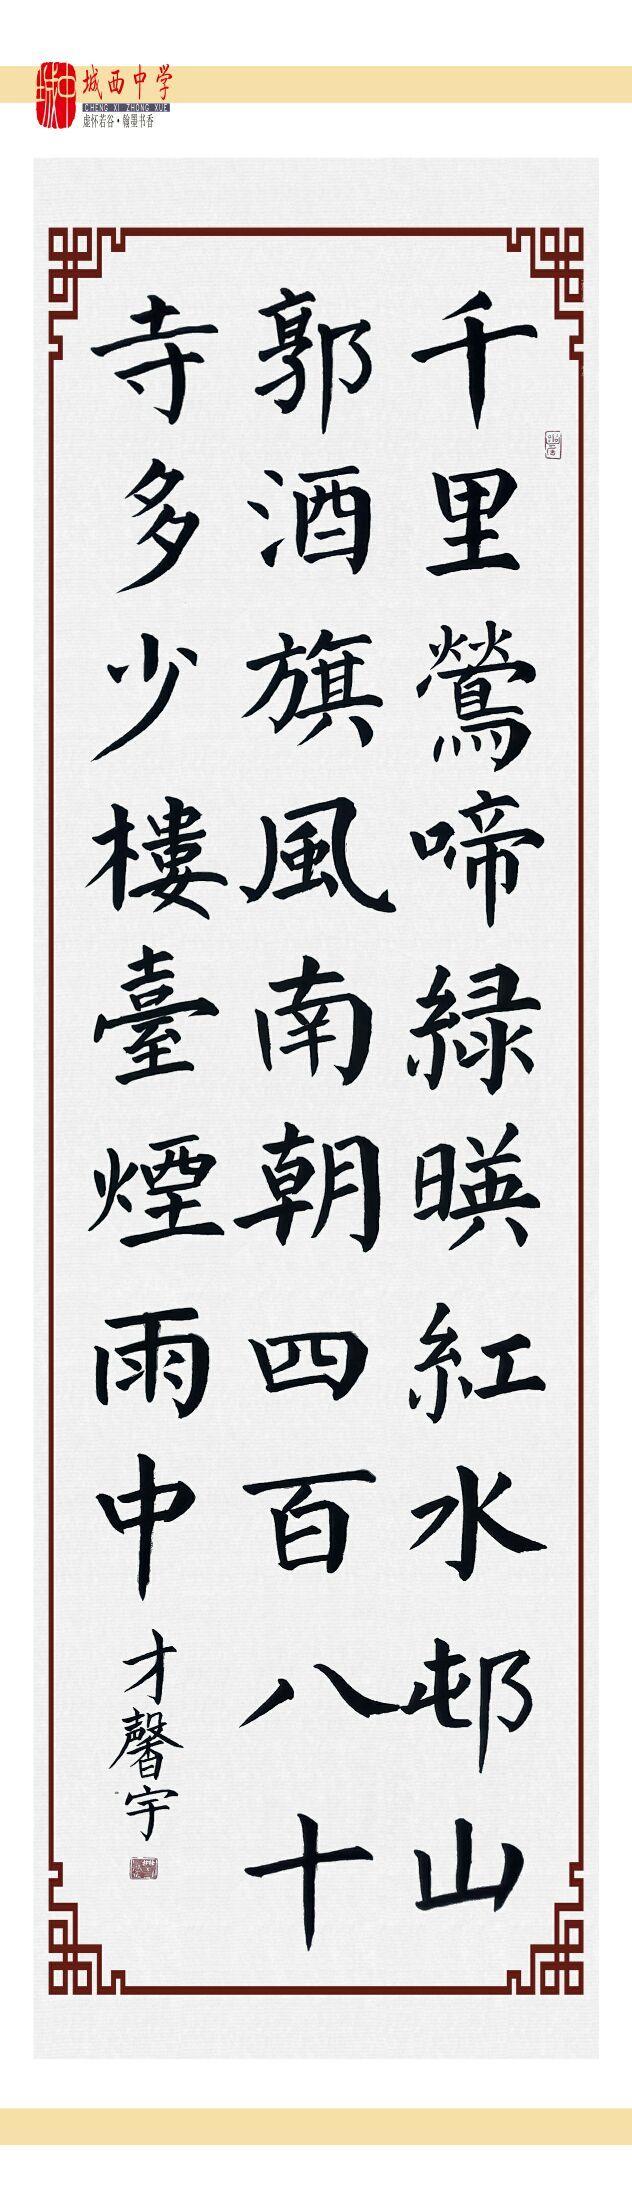 城西中学
CHENG XI ZHONG XUE
虚怀若谷·翰墨书香
千里鶯啼緑暎紅水邨山
郭酒旗風南朝四百八十
寺多少樓臺煙雨中
才馨宇